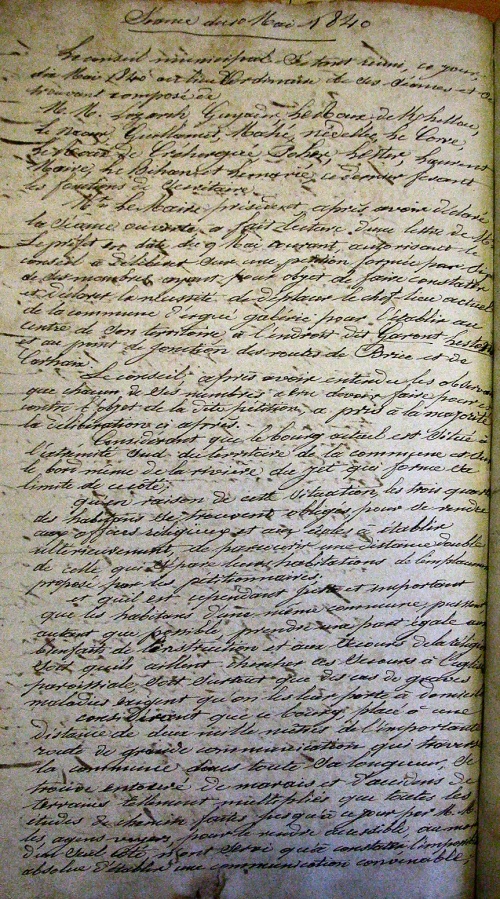 Séance du 10 Mai 1840
Le conseil municipal s'étant réuni, ce jour,
dix Mai 1840 au lieu ordinaire de ses séances et se
trouvant composé de
M.M. Lozarch, Guyader, Le Roux de
le Guillaume, Mahé, Nédellec, Le Corre
le de Tréhorquié, Laurent
Maire, le Bihan et ce dernier fesant
les fonctions de secrétaire.
Mr. le Maire président, après avoir déclaré
la séance ouverte, a fait lecture d'une lettre de M.
le préfet en date du 9 Mai courant, autorisant le
conseil à délibérer sur une pétition formée par
de ses membres ayant pour objet de faire constater
et déclarer la nécessité de déplacer le chef lieu actuel
de la commune d'ergué gabéric pour l'établir au
centre de son territoire à l'endroit dit Garont
et au point de jonction des routes de Brice et de
Corhaix.
Le conseil, après avoir entendu les observations
que chacun de ses membres a cru devoir faire pour
contre l'objet de la dite pétition, a pris à la majorité
la délibération ci après.
Considérant que le bourg actuel est situé à
l'extrémité sud du territoire de la commune et sur
le bord même de la rivière du jet qui forme la
limite de ce côté;
qu'en raison de cette situation, les trois quarts
des habitans se trouvent obligés pour se rendre
aux offices religieux et aux écoles à établir
ultérieurement, de parcourir une distance double
de celle qui sépare leurs habitations de l'emplacement
proposé par les pétitionnaires.
et qu'il est cependant juste et important
que les habitans d'une même commune, puissent
autant que possible, prendre une part égale aux
bienfaits de l'instruction et aux secours de la religion
soit qu'ils aillent chercher ces secours à l'église
paroissiale, soit surtout que des cas de graves
maladies exigent qu'on les leur porte à domicile
considérant que ce bourg, placé à une
distance de deux mille mètres de l'importante
route de grande communication qui traverse
la commune dans toute sa longueur, se
trouve entouré de marais et d'accidens de
terrains tellement multipliés que toutes les
études de chemin faites jusqu'à ce jour par M.M.
les agens voyers, pour le rendre accessible, au moins
d'un seul côté, n'ont servi qu'à constater l'impossibilité
absolue d'établir une communication convenable;